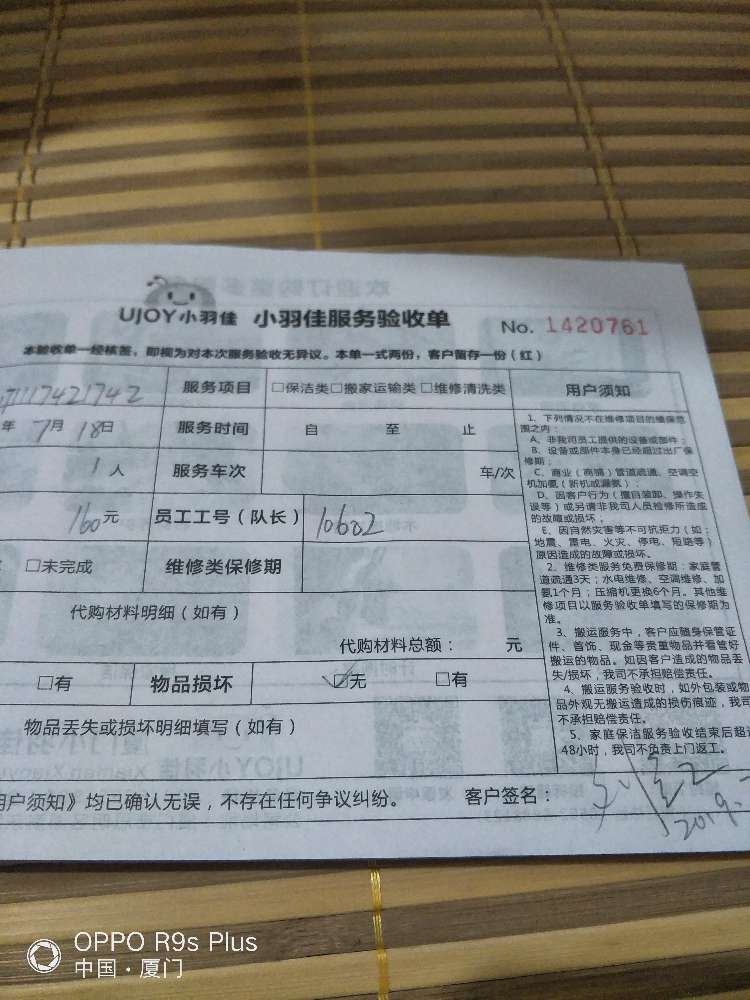 UJOY小羽佳 小羽佳服务验收单 No. 1420761
本验收单一经核签，即视为对本次服务验收无异议。本单一式两份，客户留存一份（红）
7117421742 服务项目 □保洁类□搬家运输类□维修清洗类 用户须知
年 7月 18日 服务时间 自 至 止
1人 服务车次 车/次
160元 员工工号（队长） 10602
□未完成 维修类保修期
代购材料明细（如有）
代购材料总额： 元
□有 物品损坏 ☑无 □有
物品丢失或损坏明细填写（如有）
1、下列情况不在维修项目的维保范
围之内：
A、非我司员工提供的设备或部件；
B、设备或部件本身已经超过出厂保
修期；
C、商业（商铺）管道疏通、空调空
机加氨（新机或漏氨）；
D、因客户行为（擅自装卸、操作失
误等）或另请非我司人员检修所造成
的故障或损坏；
E、因自然灾害等不可抗拒力（如：
地震、雷电、火灾、停电、短路等）
原因造成的故障或损坏。
2、维修类服务免费保修期：家庭管
道疏通3天；水电维修、空调维修、加
氨1个月；压缩机更换6个月。其他维
修项目以服务验收单填写的保修期为
准。
3、搬运服务中，客户应随身保管证
件、首饰、现金等贵重物品并看管好
搬运的物品。如因客户造成的物品丢
失/损坏，我司不承担赔偿责任。
4、搬运服务验收时，如外包装或物
品外观无搬运造成的损伤痕迹，我司
不承担赔偿责任。
5、家庭保洁服务验收结束后超过
48小时，我司不负责上门返工。
用户须知》均已确认无误，不存在任何争议纠纷。 客户签名：
2019.
OPPO R9s Plus
中国·厦门